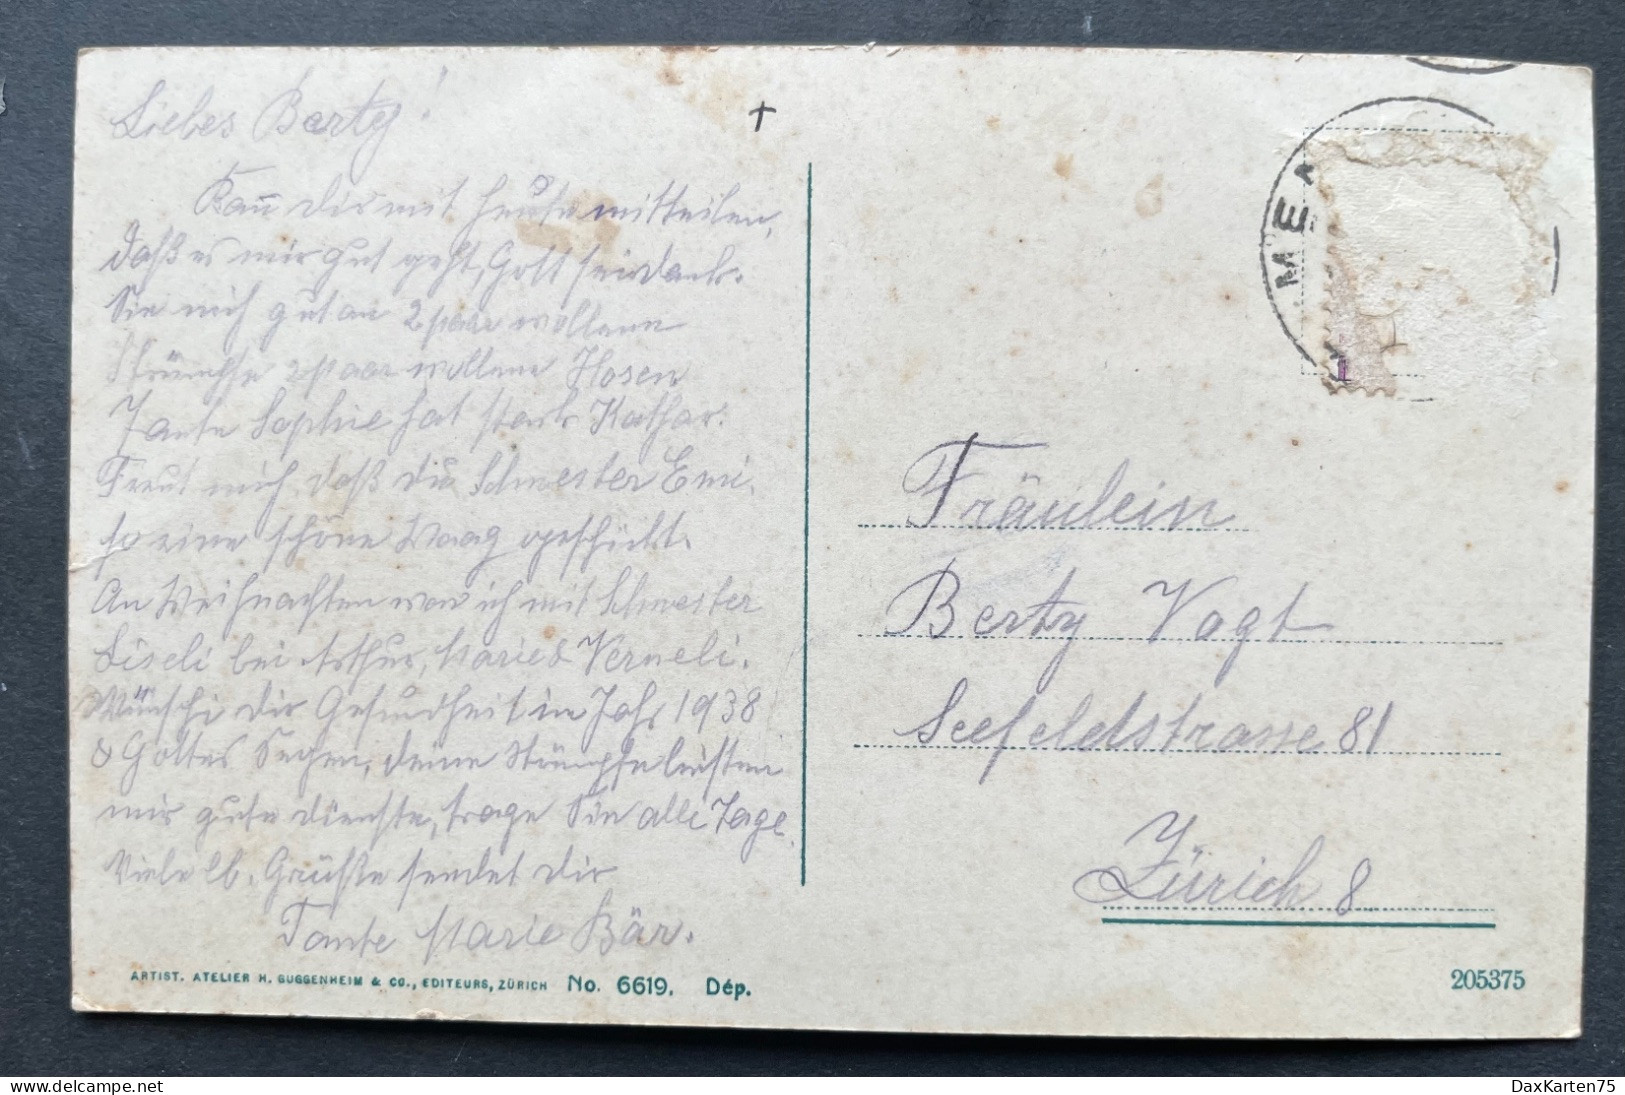 Liebes Berty!
Kann dir mit heute mitteilen,
daß es mir gut geht, Gott sei dank.
Sie mich gut an 2 paar wollene
Strümpfe 2 paar wollene Hosen
Tante Sophie hat stark Kathar.
Freut mich daß die Schwester Emi.
so eine schöne Waag geschickt.
An Weihnachten war ich mit Schwester
Liseli bei Arthur, Marie & Verneli.
Wünsche dir Gesundheit im Jahr 1938
& Gottes Segen, deine Strümpfe leisten
mir gute dienste, trage Sie alle Tage.
Viele lb. Grüße sendet dir
Tante Marie Bär.
ARTIST. ATELIER H. GUGGENHEIM & CO., EDITEURS, ZÜRICH No. 6619. Dép.
Fräulein
Berty Vogt
Seefeldstrasse 81
Zürich 8
205375
DaxKarten75